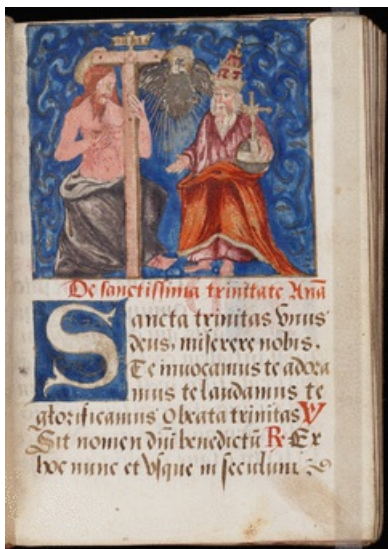 De sanctissima trinitate Anã
Sancta trinitas vnus
deus, miserere nobis.
Te inuocamus te adora
mus te laudamus te
glorificamus O beata trinitas V
Sit nomen dñi benedictũ R Ex
hoc nunc et vsque in seculum